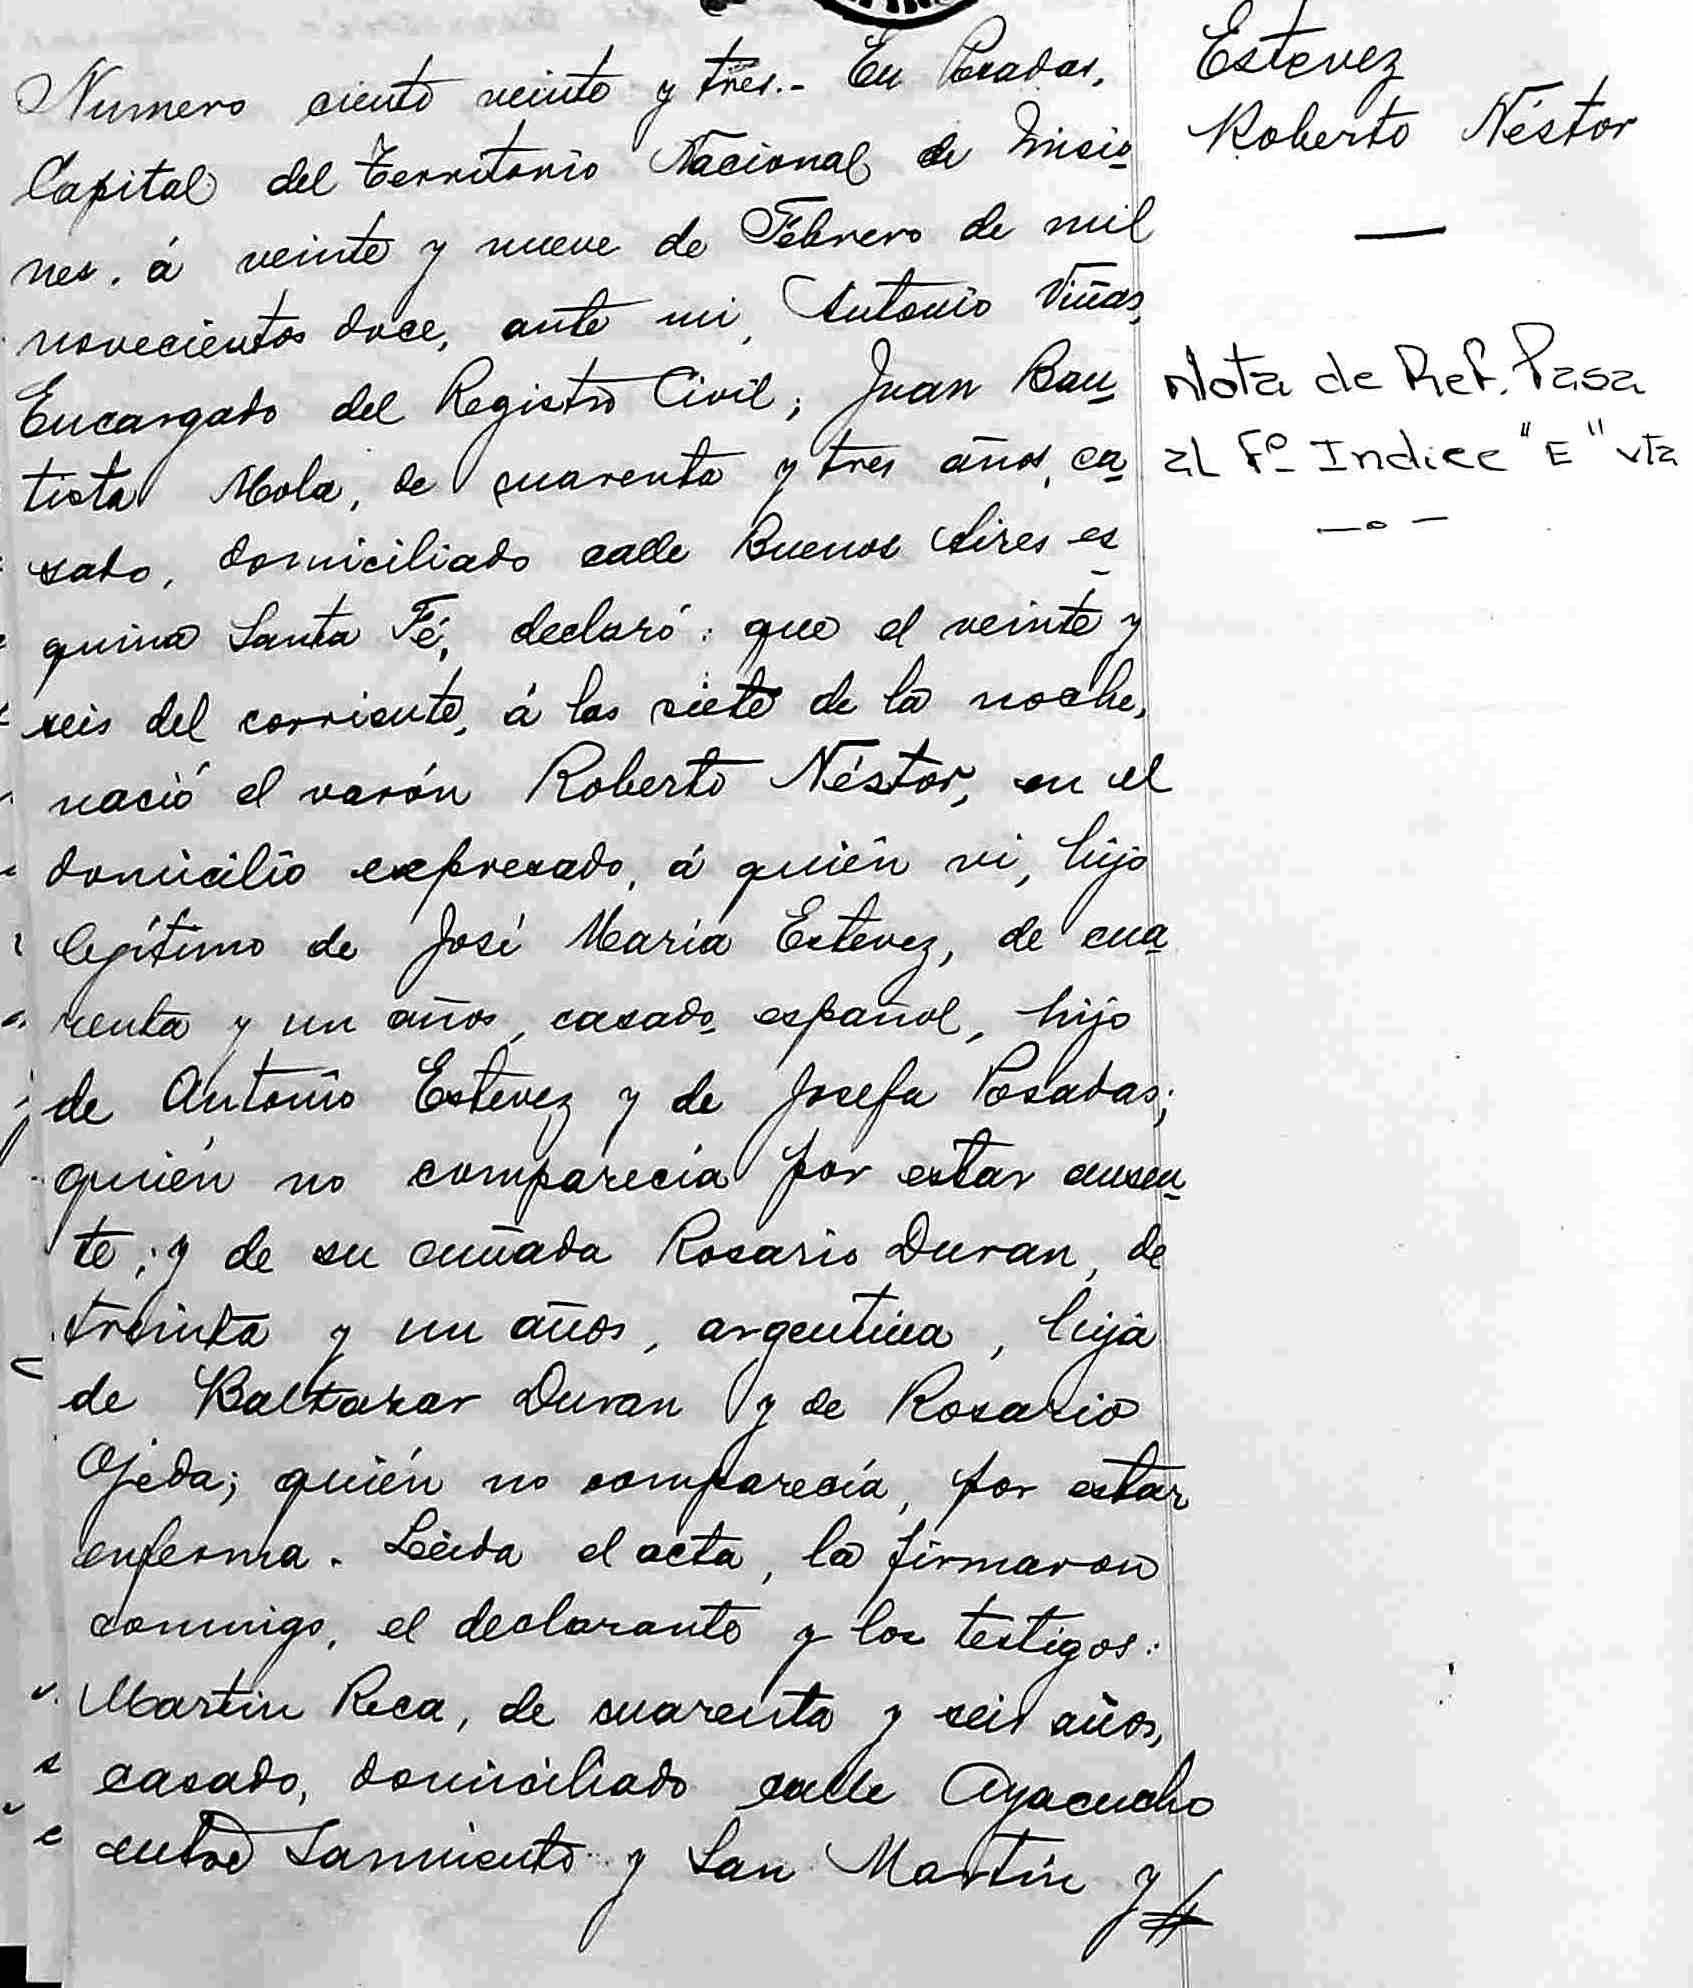 Estevez
Roberto Néstor
Nota de Ref. Pasa
al Fº Indice "E" vta
Numero ciento veinte y tres.- En Posadas,
Capital del Territorio Nacional de Misio
nes, á veinte y nueve de Febrero de mil
novecientos doce, ante mi, Antonio Viñas,
Encargado del Registro Civil; Juan Bau
tista Mola, de cuarenta y tres años, ca
sado, domiciliado calle Buenos Aires es
quina Santa Fé, declaró: que el veinte y
seis del corriente, á las siete de la noche,
nació el varón Roberto Néstor, en el
domicilio expresado, á quién vi, hijo
legítimo de José María Estevez, de cua
renta y un años, casado, español, hijo
de Antonio Estevez y de Josefa Posadas;
quién no comparecía por estar ausen
te; y de su cuñada Rosario Duran, de
treinta y un años, argentina, hija
de Baltazar Duran y de Rosario
Ojeda; quién no comparecía, por estar
enferma. Leída el acta, la firmaron
conmigo, el declarante y los testigos:
Martin Reca, de cuarenta y seis años,
casado, domiciliado calle Ayacucho
entre Sarmiento y San Martín y